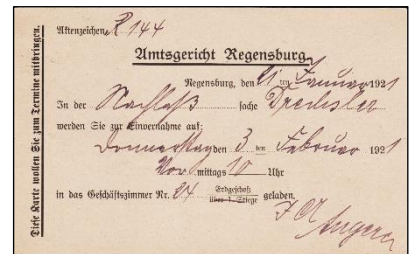 Diese Karte wollen Sie zum Termine mitbringen.
Aktenzeichen R 144
Amtsgericht Regensburg
Regensburg, den 21 ten Januar 1921
In der Nachlaß sache Drechsler
werden Sie zur Einvernahme auf:
Donnerstag den 3 ten Februar 1921
Vor mittags 10 Uhr
in das Geschäftszimmer Nr. 24 Erdgeschoß über 1. Stiege geladen.